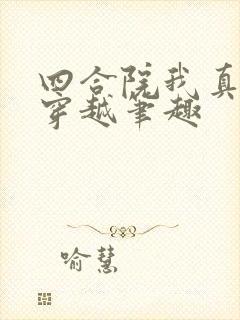 四合院我真
穿越笔趣
喻慧